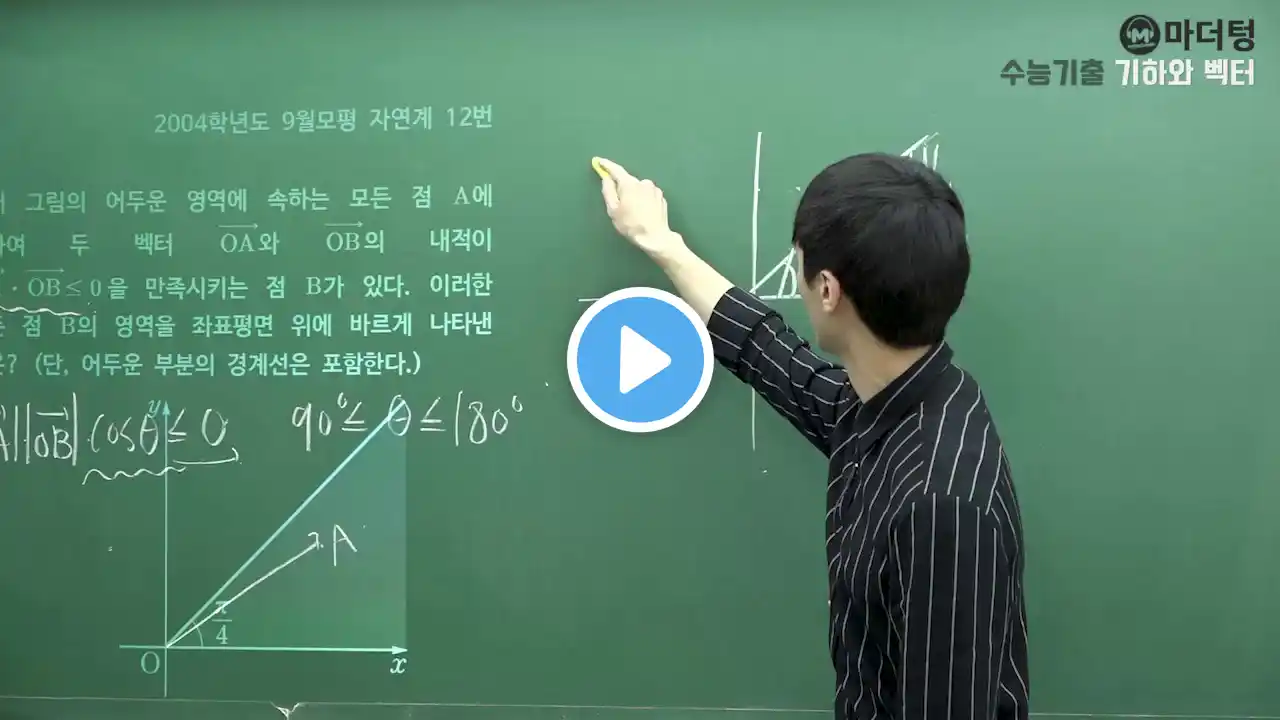 마더텅
수능기출 기하와 벡터
2004학년도 9월모평 자연계 12번
그림의 어두운 영역에 속하는 모든 점 A에
여 두 벡터 OA와 OB의 내적이
· OB ≤ 0을 만족시키는 점 B가 있다. 이러한
점 B의 영역을 좌표평면 위에 바르게 나타낸
? (단, 어두운 부분의 경계선은 포함한다.)
||OB| cosθ ≤ 0 90° ≤ θ ≤ 180°
y
A
π/4
O x